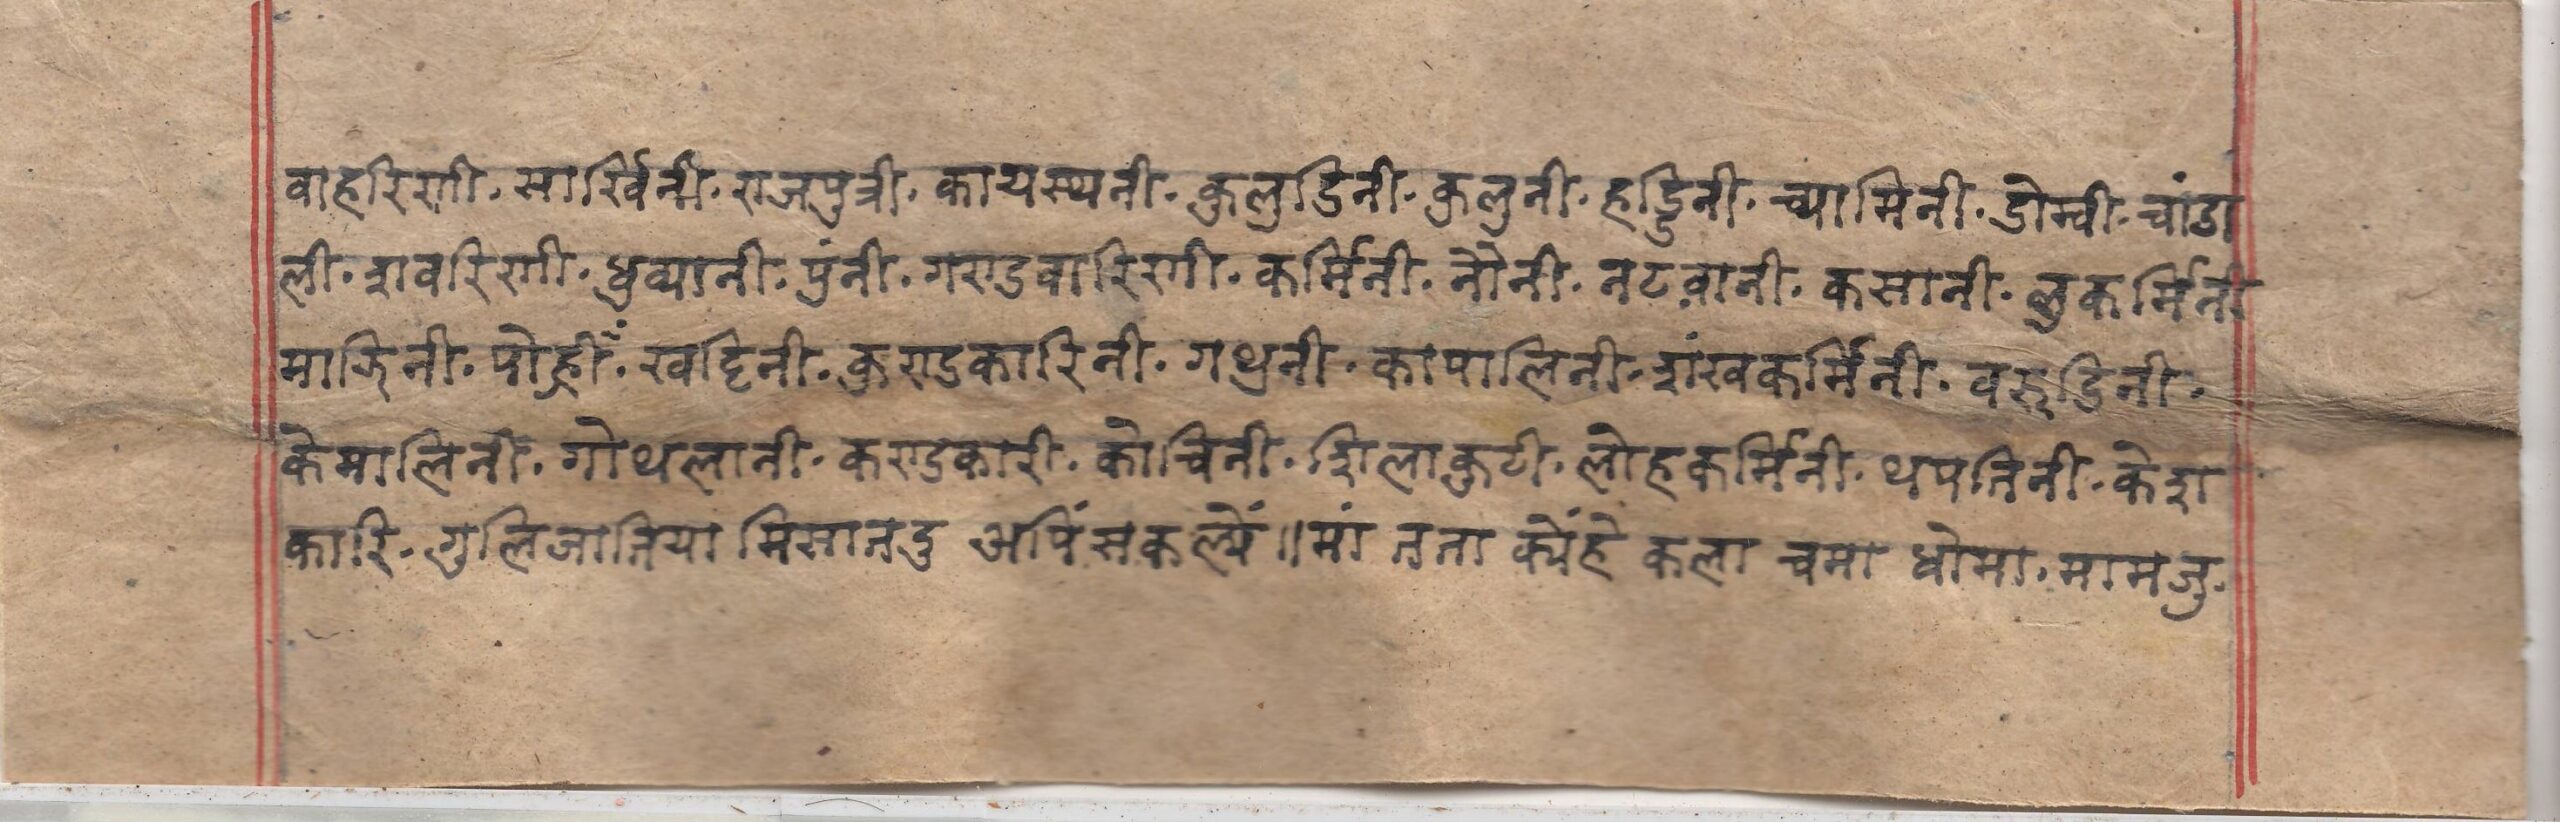 वाहरिणी. सार्खिनी. राजपुत्री. कायस्थनी. कुलुडिनी. कुलुनी. हड्डिनी. च्यामिनी. डोम्वी. चांडा
ली. शवरिणी. धुव्यानी. पुंनी. गण्डवारिणी. कर्मिनी. नौनी. नटवानी. कसानी. लुकर्मिनी
माझिनी. पोह्रीं. खद्दिनी. कुण्डकारिनी. गथुनी. कापालिनी. शंखकर्मिनी. वरूडिनी.
केमालिनी. गोथलानी. कण्डकारी. कोचिनी. शिलाकुटी. लोहकर्मिनी. थपतिनी. केश
कारि. गुलिजातिया मिसानदु अपिं सकल्यें॥मां नना क्येंहे कला चमा धोमा. मामजु.